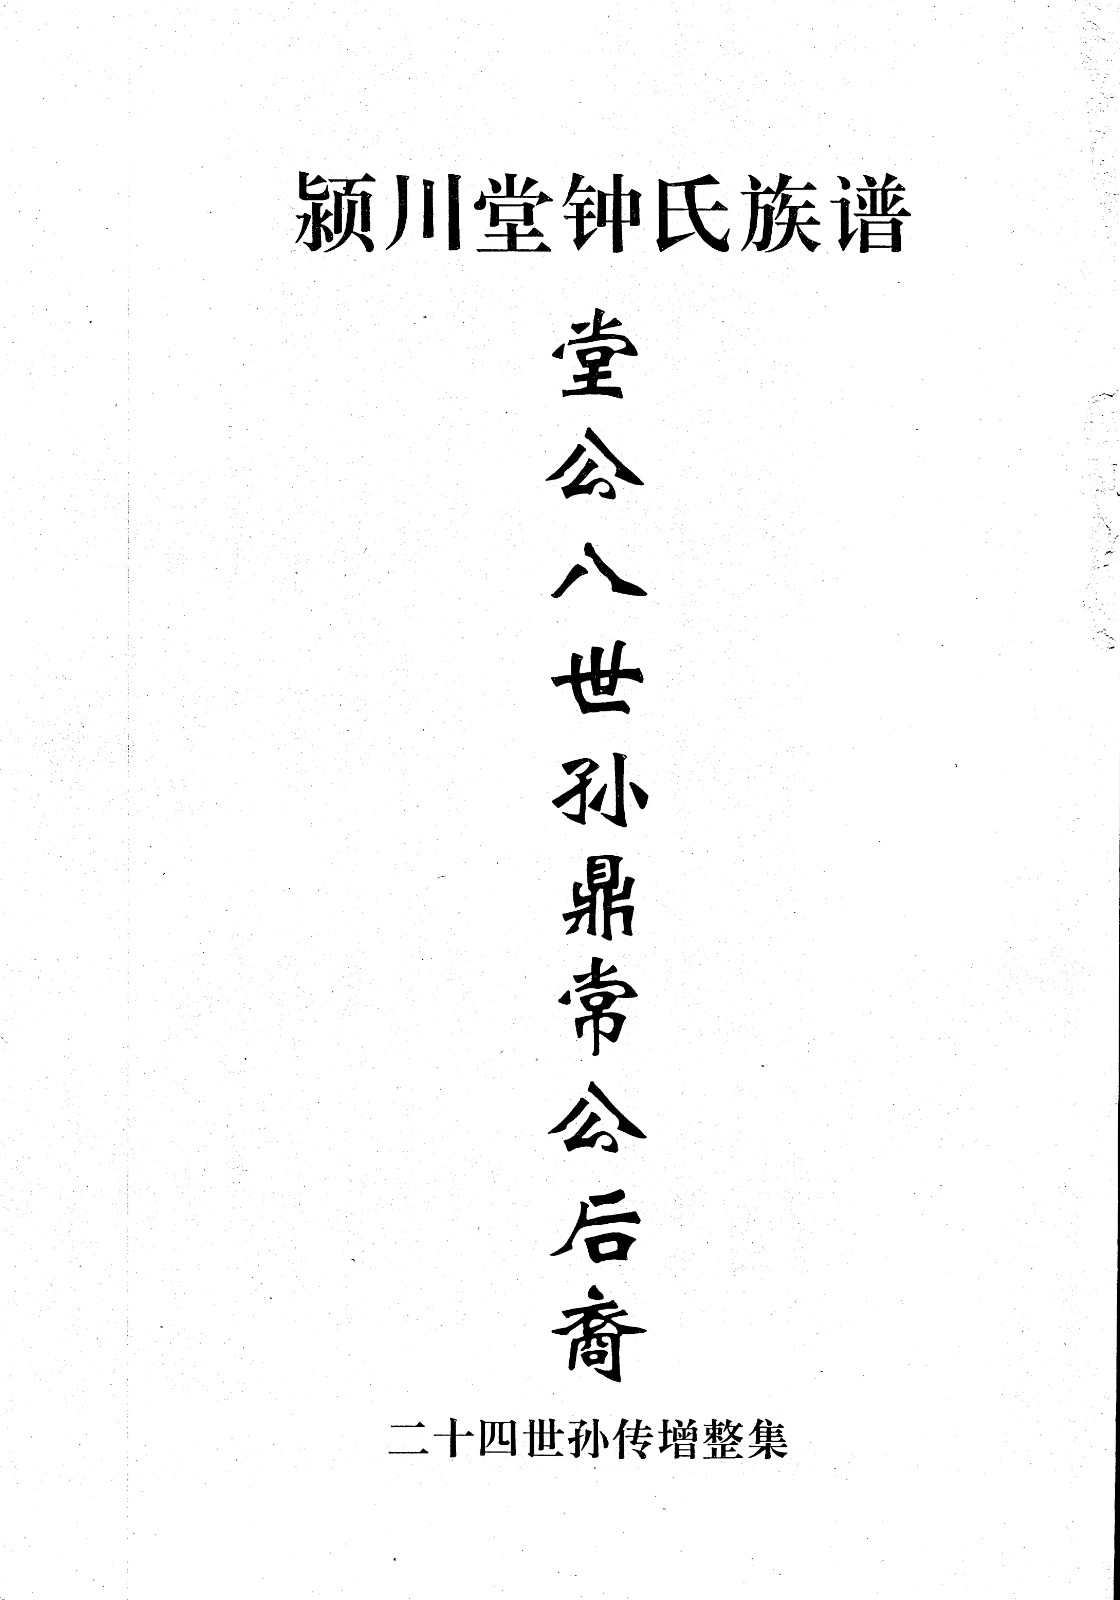 颍川堂钟氏族谱
堂公八世孙鼎常公后裔
二十四世孙传增整集